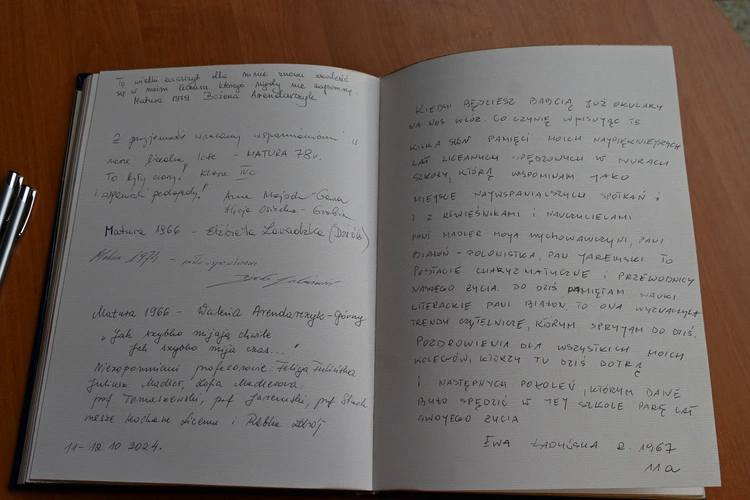 To wielki zaszczyt dla mnie znowu znaleźć
się w moim Liceum którego nigdy nie zapomnę.
Matura 1979 Bożena Arendarczyk
Z przyjemnością wracamy wspomnieniami w
nasze licealne lata - MATURA 78 r.
To były czasy! Klasa IVc
i wspaniali pedagodzy! Anna Majda-Gama
Alicja
Matura 1966 - Elżbieta Zawadzka
1974 -
Matura 1966 - Waleria Arendarczyk-Górny
"Jak szybko mijają chwile
Jak szybko mija czas..."
Niezapomniani profesorowie: Felicja
Juliusz Madler, Zofia Madlerowa,
prof Tomaszewski, prof Jaremski, prof
nasze kochane Liceum i Rabka Zdrój
11-12.10 2024.
KIEDY BĘDZIESZ BABCIĄ JUŻ OKULARY
NA NOS WŁÓŻ. CO CZYNIĘ WPISUJĄC TE
KILKA SŁÓW PAMIĘCI MOICH NAJPIĘKNIEJSZYCH
LAT LICEALNYCH SPĘDZONYCH W MURACH
SZKOŁY, KTÓRĄ WSPOMINAM JAKO
MIEJSCE NAJWSPANIALSZYCH SPOTKAŃ I
I Z RÓWIEŚNIKAMI I NAUCZYCIELAMI
PANI MADLER MOJA WYCHOWAWCZYNI, PANI
BIAŁOŃ - POLONISTKA, PAN JAREMSKI TO
POSTACIE CHARYZMATYCZNE I PRZEWODNICY
NASZEGO ŻYCIA. DO DZIŚ PAMIĘTAM NAUKI
LITERACKIE PANI BIAŁOŃ. TO ONA WYZNACZYŁA
TRENDY CZYTELNICZE, KTÓRYM SPRZYJAM DO DZIŚ.
POZDROWIENIA DLA WSZYSTKICH MOICH
KOLEGÓW, KTÓRZY TU DZIŚ DOTRĄ
I NASTĘPNYCH POKOLEŃ, KTÓRYM DANE
BYŁO SPĘDZIĆ W TEJ SZKOLE PARĘ LAT
SWOJEGO ŻYCIA
EWA R. 1967
11a